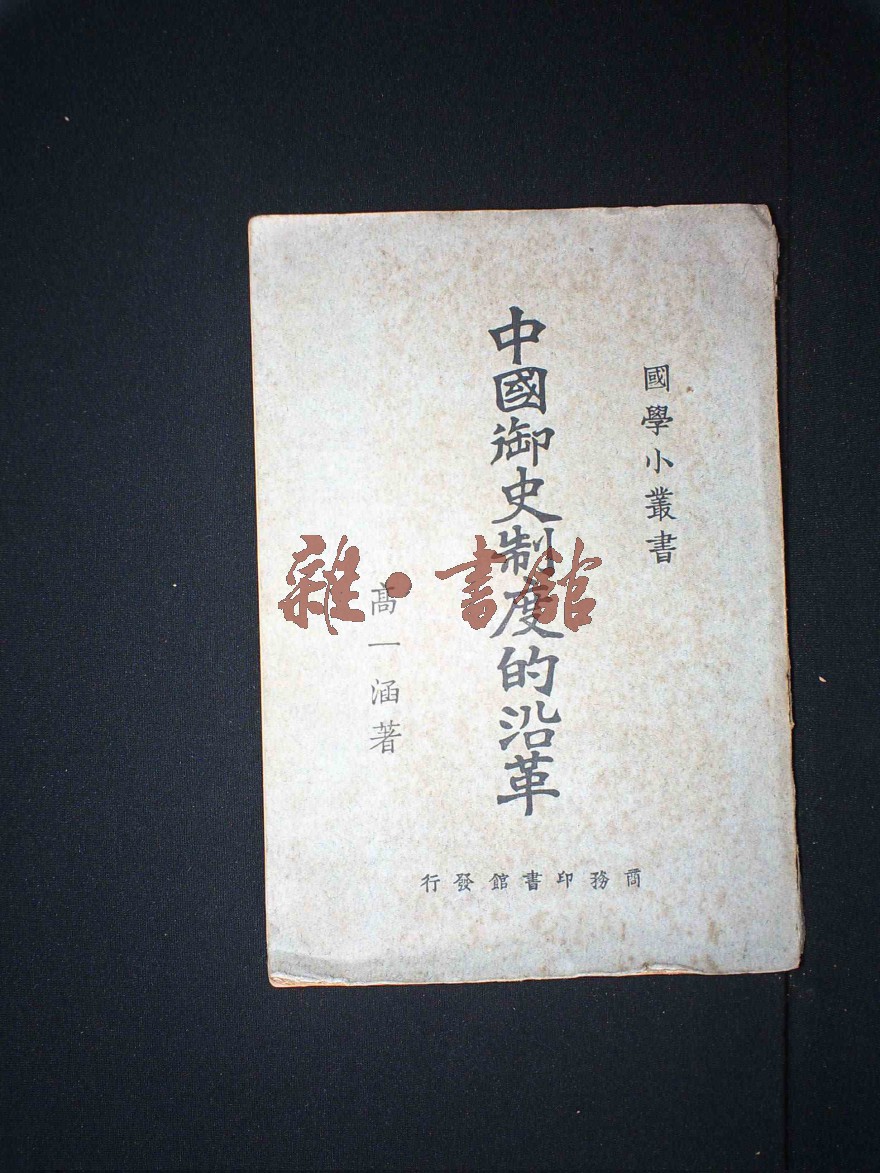 國學小叢書
中國御史制度的沿革
高一涵著
商務印書館發行
雜·書館